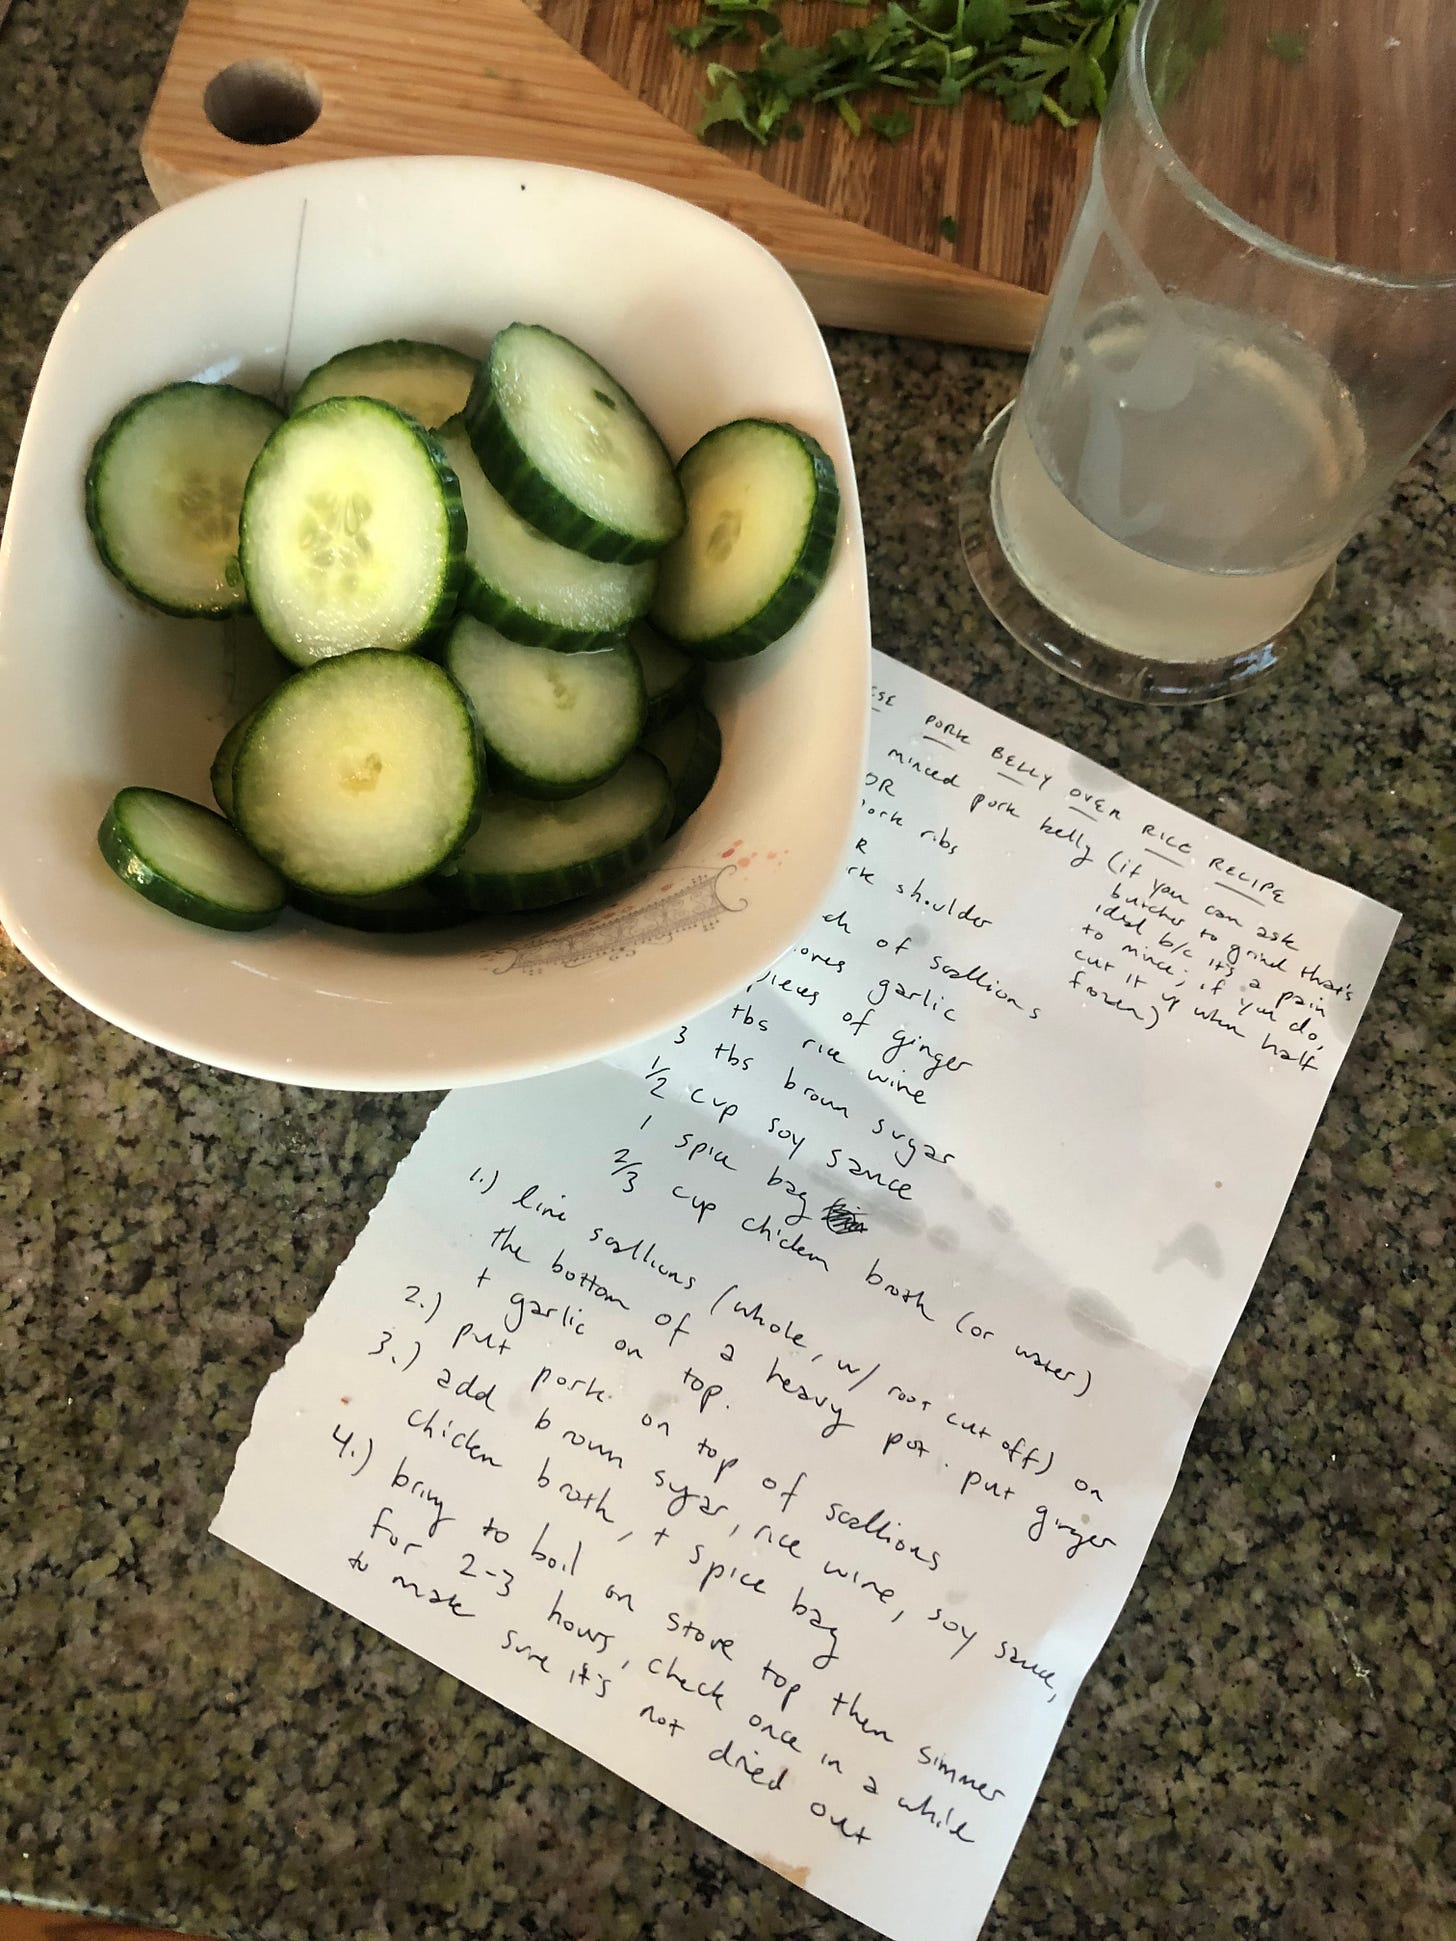 PORK BELLY OVER RICE RECIPE
minced pork belly (if you can ask
butcher to grind that's
ideal b/c it's a pain
to mince; if you do,
cut it up when half
frozen)
OR
pork ribs
shoulder
of scallions
garlic
pieces of ginger
tbs rice wine
3 tbs brown sugar
1/2 cup soy sauce
1 spice bag
2/3 cup chicken broth (or water)
1.) line scallions (whole, w/ root cut off) on
the bottom of a heavy pot. put ginger
+ garlic on top.
2.) put pork on top of scallions
3.) add brown sugar, rice wine, soy sauce,
chicken broth, + spice bag
4.) bring to boil on stove top then simmer
for 2-3 hours, check once in a while
to make sure it's not dried out